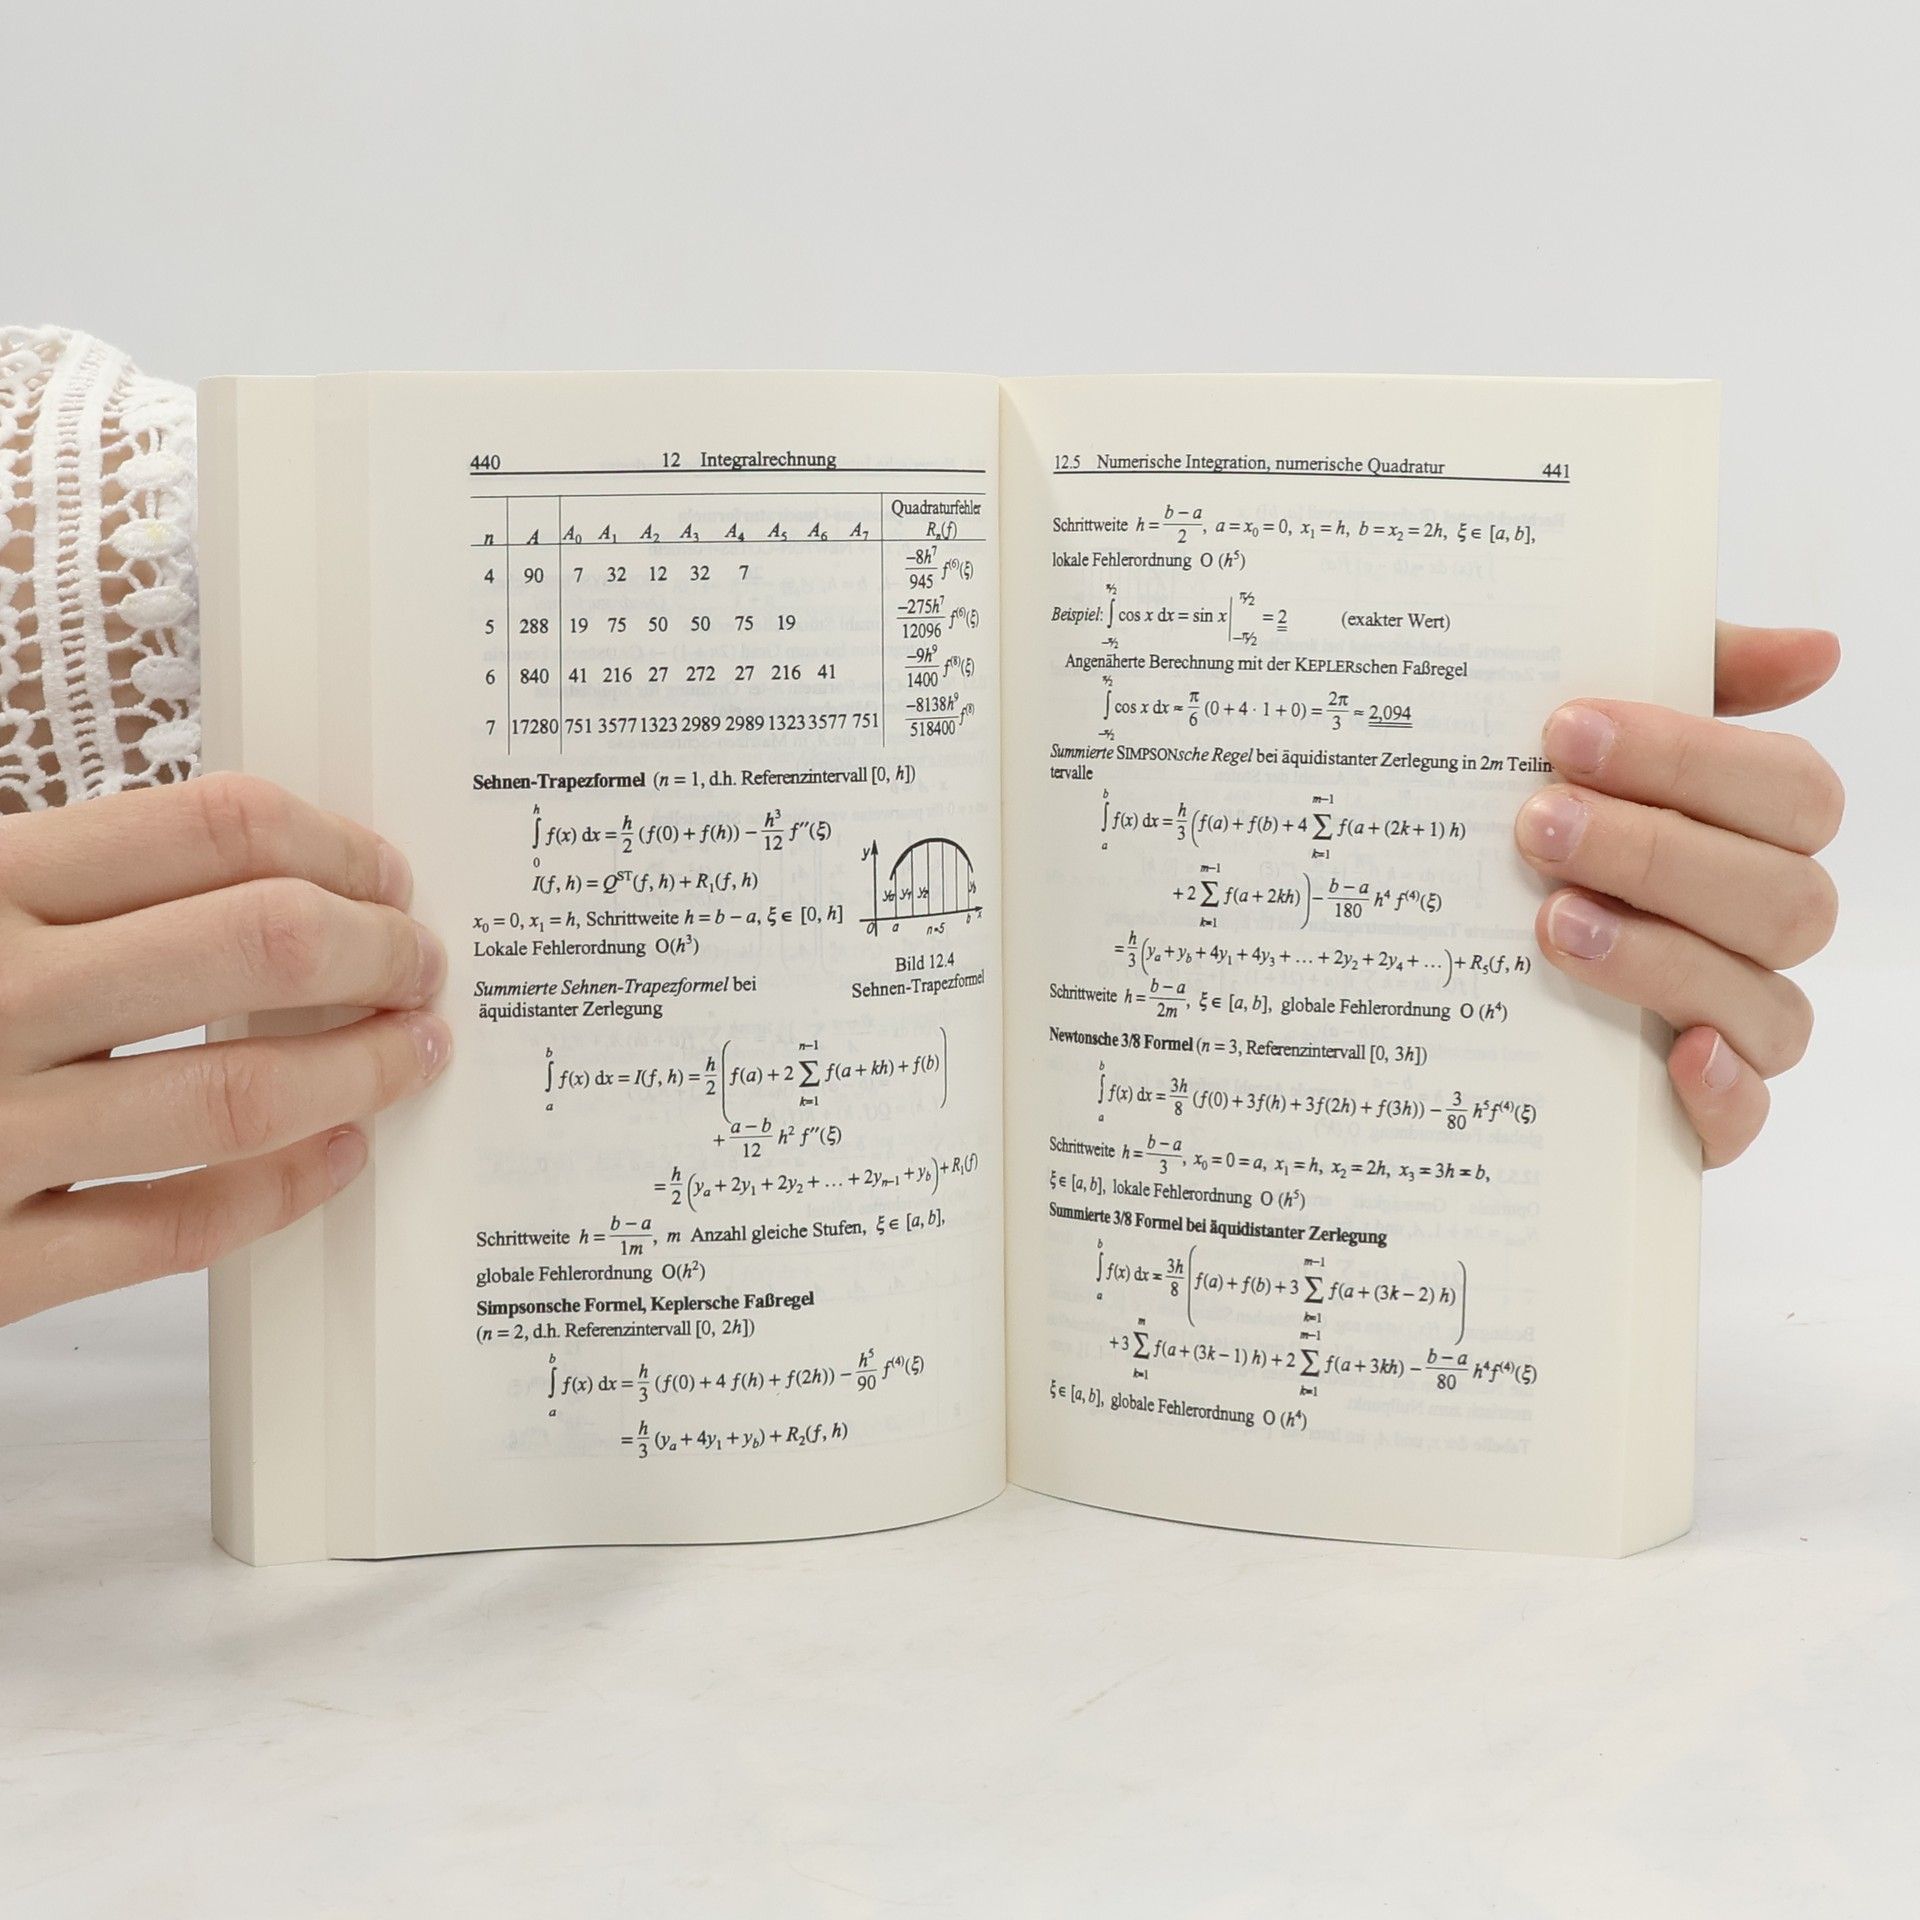 440 12 Integralrechnung
n A A₀ A₁ A₂ A₃ A₄ A₅ A₆ A₇ Quadraturfehler Rₙ(f)
4 90 7 32 12 32 7 −8h⁷/945 f⁽⁶⁾(ξ)
5 288 19 75 50 50 75 19 −275h⁷/12096 f⁽⁶⁾(ξ)
6 840 41 216 27 272 27 216 41 −9h⁹/1400 f⁽⁸⁾(ξ)
7 17280 751 3577 1323 2989 2989 1323 3577 751 −8138h⁹/518400 f⁽⁸⁾
Sehnen-Trapezformel (n = 1, d.h. Referenzintervall [0, h])
∫₀ʰ f(x) dx = h/2 (f(0) + f(h)) − h³/12 f″(ξ)
I(f, h) = Qˢᵀ(f, h) + R₁(f, h)
x₀ = 0, x₁ = h, Schrittweite h = b − a, ξ ∈ [0, h]
Lokale Fehlerordnung O(h³)
y y₀ y₁ y₂ y₅ 0 a n=5 b x
Bild 12.4
Sehnen-Trapezformel
Summierte Sehnen-Trapezformel bei
äquidistanter Zerlegung
∫ₐᵇ f(x) dx = I(f, h) = h/2 ( f(a) + 2 ∑ₖ₌₁ⁿ⁻¹ f(a + kh) + f(b) )
+ (a − b)/12 h² f″(ξ)
= h/2 (yₐ + 2y₁ + 2y₂ + … + 2yₙ₋₁ + y_b) + R₁(f)
Schrittweite h = (b − a)/1m, m Anzahl gleiche Stufen, ξ ∈ [a, b],
globale Fehlerordnung O(h²)
Simpsonsche Formel, Keplersche Faßregel
(n = 2, d.h. Referenzintervall [0, 2h])
∫ₐᵇ f(x) dx = h/3 (f(0) + 4 f(h) + f(2h)) − h⁵/90 f⁽⁴⁾(ξ)
= h/3 (yₐ + 4y₁ + y_b) + R₂(f, h)
12.5 Numerische Integration, numerische Quadratur 441
Schrittweite h = (b − a)/2, a = x₀ = 0, x₁ = h, b = x₂ = 2h, ξ ∈ [a, b],
lokale Fehlerordnung O (h⁵)
Beispiel: ∫_{−π/2}^{π/2} cos x dx = sin x |_{−π/2}^{π/2} = 2 (exakter Wert)
Angenäherte Berechnung mit der KEPLERschen Faßregel
∫_{−π/2}^{π/2} cos x dx ≈ π/6 (0 + 4 · 1 + 0) = 2π/3 ≈ 2,094
Summierte SIMPSONsche Regel bei äquidistanter Zerlegung in 2m Teilin-
tervalle
∫ₐᵇ f(x) dx = h/3 ( f(a) + f(b) + 4 ∑ₖ₌₁ᵐ⁻¹ f(a + (2k + 1) h)
+ 2 ∑ₖ₌₁ᵐ⁻¹ f(a + 2kh) ) − (b − a)/180 h⁴ f⁽⁴⁾(ξ)
= h/3 (yₐ + y_b + 4y₁ + 4y₃ + … + 2y₂ + 2y₄ + …) + R₅(f, h)
Schrittweite h = (b − a)/2m, ξ ∈ [a, b], globale Fehlerordnung O (h⁴)
Newtonsche 3/8 Formel (n = 3, Referenzintervall [0, 3h])
∫ₐᵇ f(x) dx = 3h/8 (f(0) + 3f(h) + 3f(2h) + f(3h)) − 3/80 h⁵f⁽⁴⁾(ξ)
Schrittweite h = (b − a)/3, x₀ = 0 = a, x₁ = h, x₂ = 2h, x₃ = 3h = b,
ξ ∈ [a, b], lokale Fehlerordnung O (h⁵)
Summierte 3/8 Formel bei äquidistanter Zerlegung
∫ₐᵇ f(x) dx = 3h/8 ( f(a) + f(b) + 3 ∑ₖ₌₁ᵐ⁻¹ f(a + (3k − 2) h) )
+ 3 ∑ₖ₌₁ᵐ f(a + (3k − 1) h) + 2 ∑ₖ₌₁ᵐ⁻¹ f(a + 3kh) − (b − a)/80 h⁴f⁽⁴⁾(ξ)
ξ ∈ [a, b], globale Fehlerordnung O (h⁴)